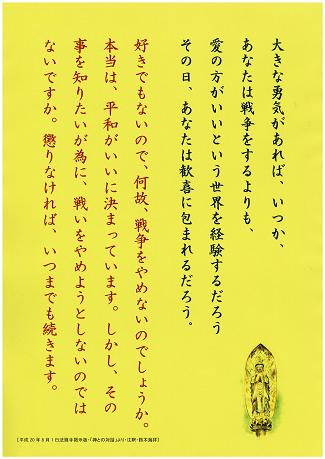 大きな勇気があれば、いつか、
あなたは戦争をするよりも、
愛の方がいいという世界を経験するだろう
その日、あなたは歓喜に包まれるだろう。
好きでもないので、何故、戦争をやめないのでしょうか。
本当は、平和がいいに決まっています。しかし、その
事を知りたいが為に、戦いをやめようとしないのでは
ないですか。懲りなければ、いつまでも続きます。
［平成20年8月1日法語寺掲示板・「神との対話」より・注釈・鈴木海祥］